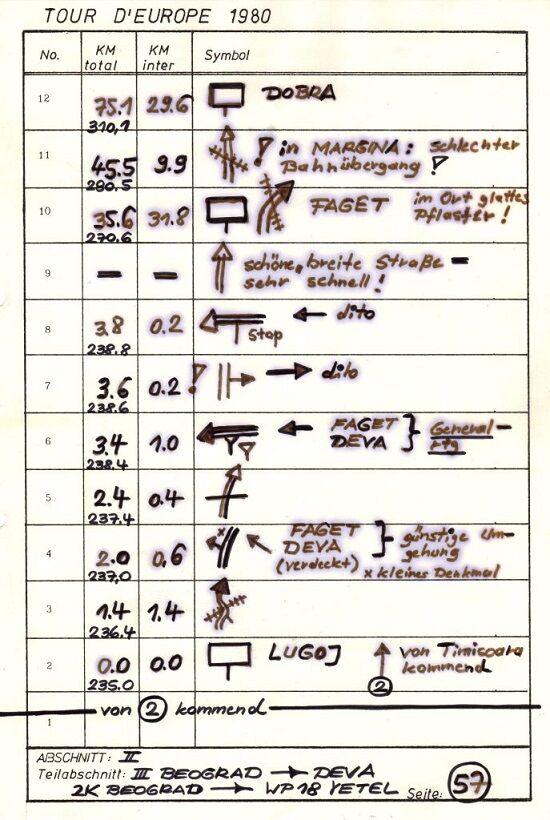 TOUR D'EUROPE 1980
No. KM total KM inter Symbol
12 75.1 29.6 DOBRA
310,1
11 45.5 9.9 ! in MARGINA: schlechter
280.5 Bahnübergang !
10 35.6 31.8 FAGET im Ort glattes
270.6 Pflaster!
9 – – schöne, breite Straße –
sehr schnell!
8 3.8 0.2 dito
238.8 Stop
7 3.6 0.2 ! dito
238.6
6 3.4 1.0 FAGET General–
238,4 DEVA rtg
5 2.4 0.4
237.4
4 2.0 0.6 x FAGET günstige Um–
237,0 DEVA gehung
(verdeckt) x kleines Denkmal
3 1.4 1.4
236.4
2 0.0 0.0 LUGOJ von Timisoara
235.0 kommend
2
1 von 2 kommend
ABSCHNITT: II
Teilabschnitt: III BEOGRAD → DEVA
2K BEOGRAD → WP18 VETEL Seite: 57